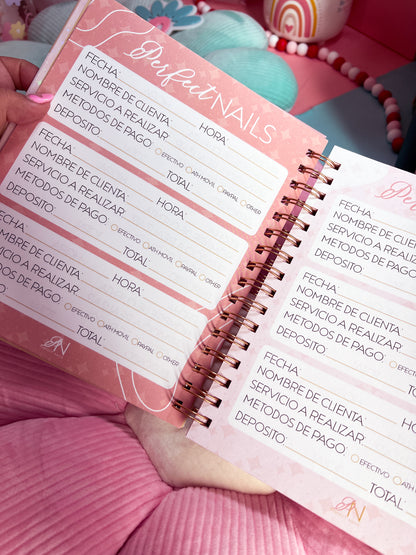 Perfect NAILS
FECHA: HORA:
NOMBRE DE CLIENTA:
SERVICIO A REALIZAR:
METODOS DE PAGO: EFECTIVO ATH MOVIL PAYPAL OTHER
DEPOSITO: TOTAL:
FECHA: HORA:
NOMBRE DE CLIENTA:
SERVICIO A REALIZAR:
METODOS DE PAGO: EFECTIVO ATH MOVIL PAYPAL OTHER
DEPOSITO: TOTAL:
FECHA: HORA:
NOMBRE DE CLIENTA:
SERVICIO A REALIZAR:
METODOS DE PAGO: EFECTIVO ATH MOVIL PAYPAL OTHER
DEPOSITO: TOTAL:
FECHA:
NOMBRE DE CLIENTA:
SERVICIO A REALIZAR:
METODOS DE PAGO:
DEPOSITO:
FECHA:
NOMBRE DE CLIENTA:
SERVICIO A REALIZAR:
METODOS DE PAGO:
DEPOSITO:
FECHA:
NOMBRE DE CLIENTA:
SERVICIO A REALIZAR:
METODOS DE PAGO: EFECTIVO ATH M
DEPOSITO: TOTAL: